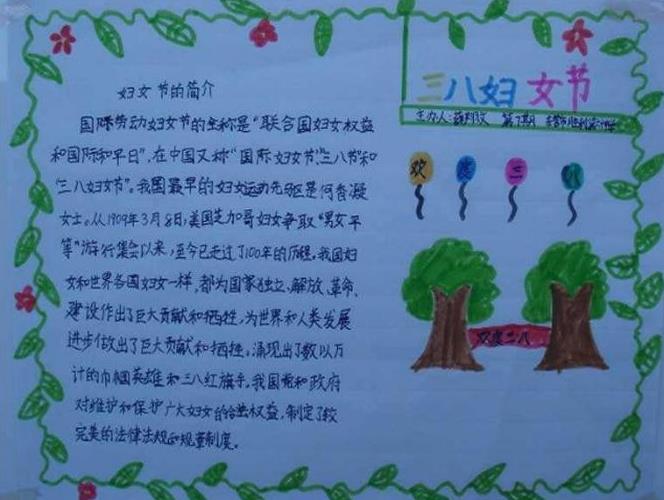 妇女节的简介
国际劳动妇女节的全称是"联合国妇女权益
和国际和平日",在中国又称"国际妇女节"、"三八节"和
"三八妇女节"。我国最早的妇女运动先驱是何香凝
女士。从1909年3月8日,美国芝加哥妇女争取"男女平
等"游行集会以来,至今已走过了100年的历程。我国妇
女和世界各国妇女一样,都为国家独立、解放、革命、
建设作出了巨大贡献和牺牲,为世界和人类发展
进步做出了巨大贡献和牺牲。涌现出了数以万
计的巾帼英雄和三八红旗手。我国党和政府
对维护和保护广大妇女的合法权益,制定了较
完美的法律法规和规章制度。
三八妇女节
主办人: 第7期
欢度三八
欢度三八